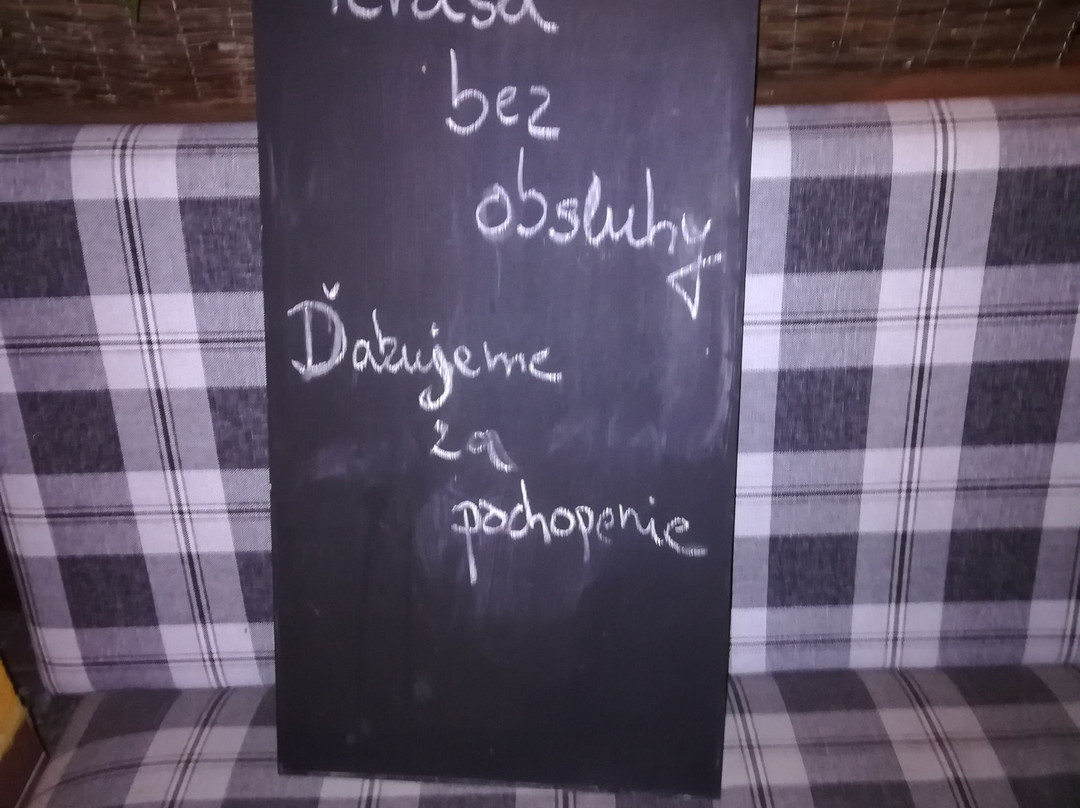 Terasa
bez
obsluhy
Ďakujeme
za
pochopenie